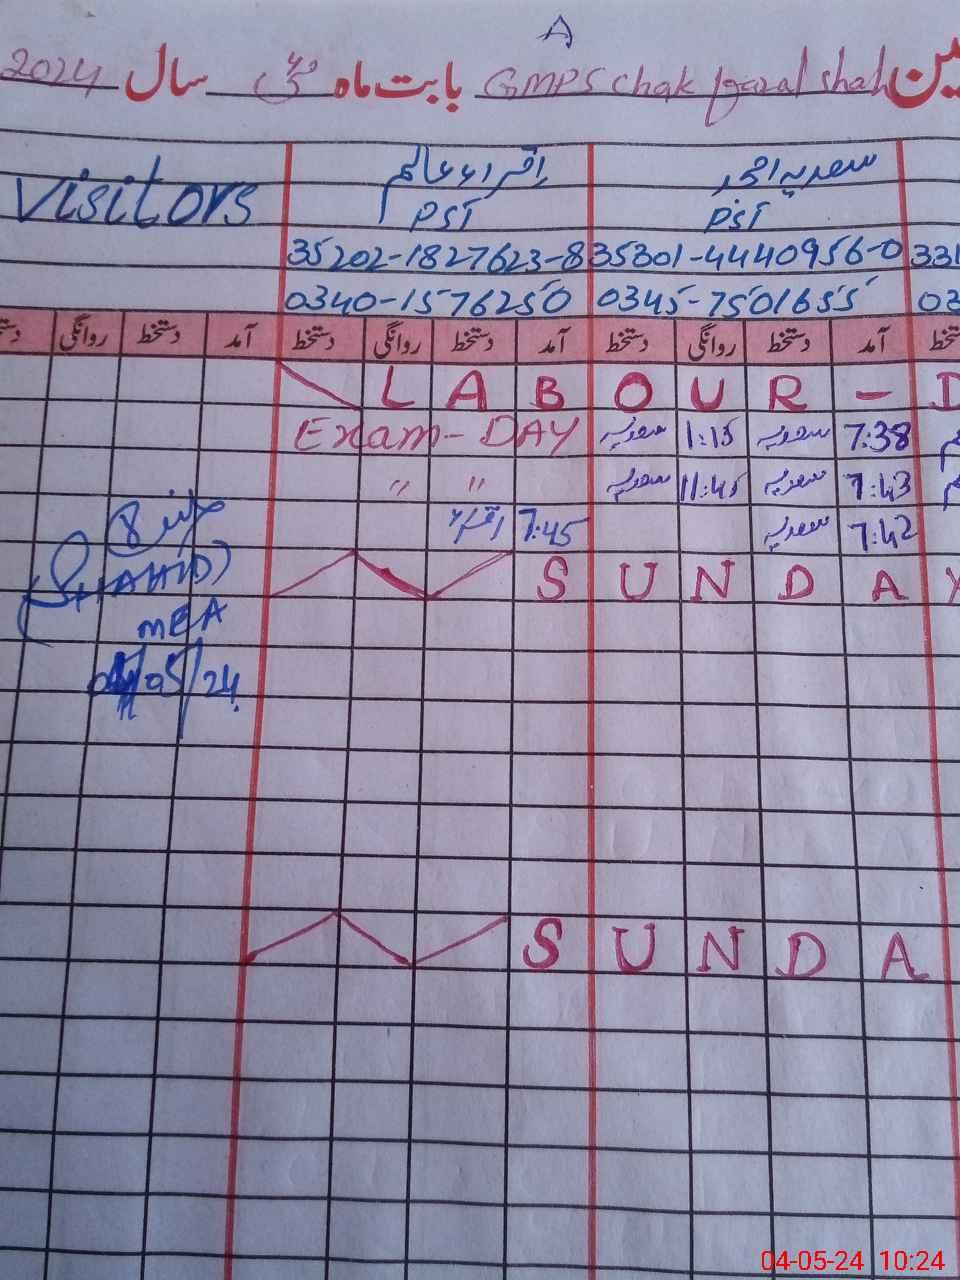 A
ین GMPS Chak fazal shah بابت ماہ مئی سال 2024
سعدیہ احمد اقراء عالم Visitors
PST PST
35202-1827623-8 35301-4440956-0 331
0340-1576250 0345-7501655 03
دستخط آمد روانگی دستخط آمد دستخط روانگی دستخط آمد دستخط روانگی
LABOUR - D
Exam - DAY سعدیہ 1:15 سعدیہ 7:38
" " سعدیہ 11:45 سعدیہ 7:43
اقراء 7:45 سعدیہ 7:42
SUNDAY
(SHAHID)
MEA
04/05/24
SUNDA
04-05-24 10:24